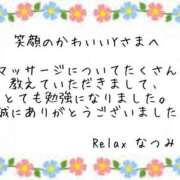 笑顔のかわいいYさまへ
マッサージについてたくさん
教えていただきまして、
とても勉強になりました。
誠にありがとうございました
Relax なつみ